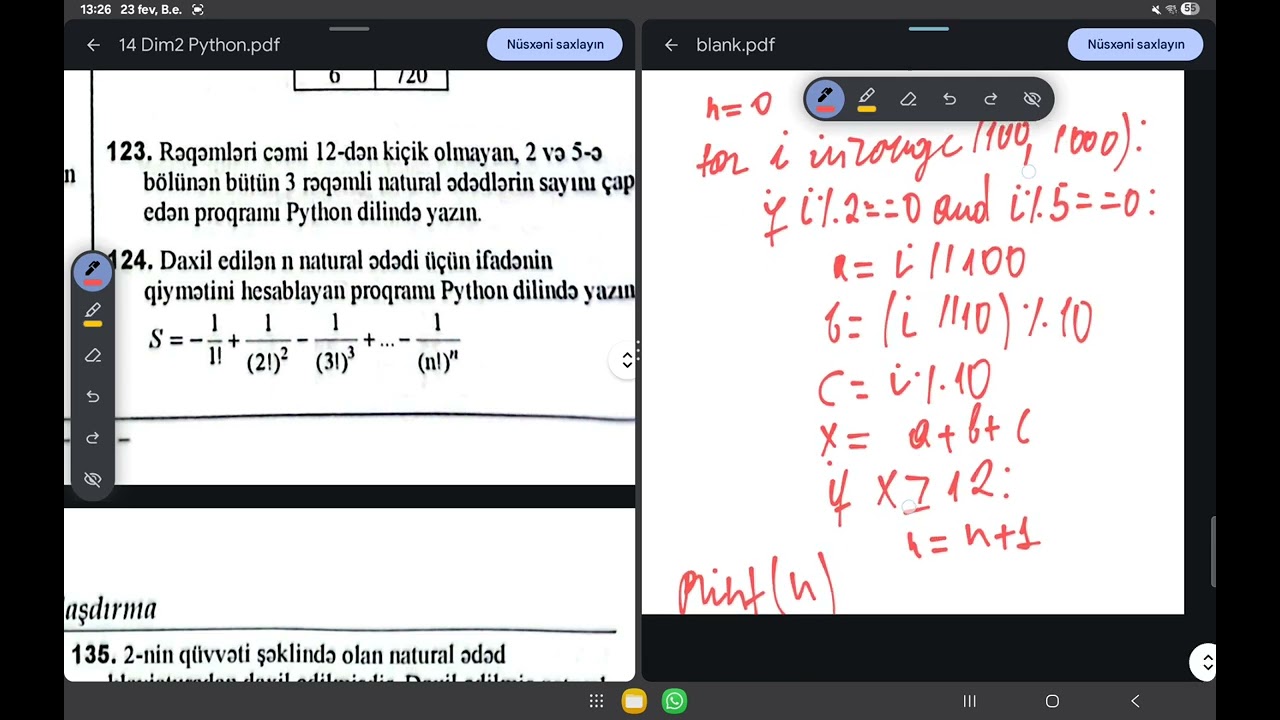 13:26 23 fev, B.e.
55
14 Dim2 Python.pdf
Nüsxəni saxlayın
6 720
123. Rəqəmləri cəmi 12-dən kiçik olmayan, 2 və 5-ə
bölünən bütün 3 rəqəmli natural ədədlərin sayını çap
edən proqramı Python dilində yazın.
n
124. Daxil edilən n natural ədədi üçün ifadənin
qiymətini hesablayan proqramı Python dilində yazın
S = - 1/1! + 1/(2!)² - 1/(3!)³ + ... - 1/(n!)ⁿ
aşdırma
135. 2-nin qüvvəti şəklində olan natural ədəd
blank.pdf
Nüsxəni saxlayın
n=0
for i in range(100, 1000):
if i%2==0 and i%5==0:
a= i//100
b=(i//10)%10
c= i%10
x= a+b+c
if x≥12:
n=n+1
print(n)